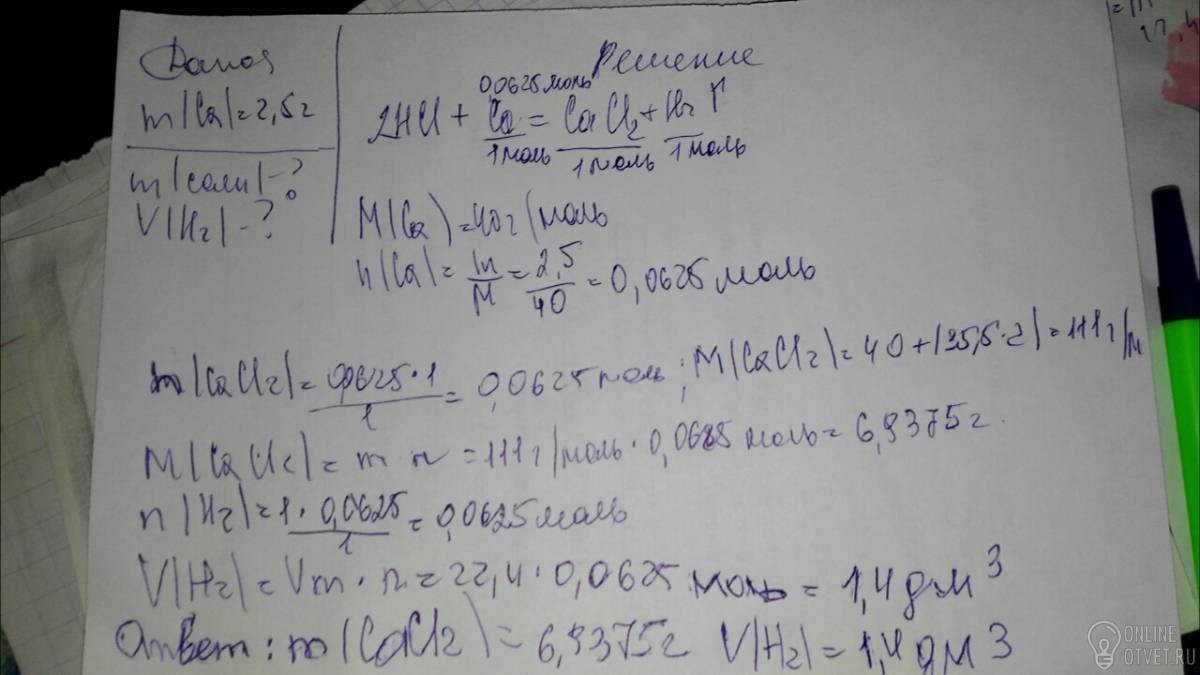 Дано:
m(Ca)=2,5г
m(соли)-?
V(H2)-?
Решение
0,0625 моль
2HCl + Ca = CaCl2 + H2↑
1 моль 1 моль 1 моль
M(Ca)=40г/моль
n(Ca)= m/M = 2,5/40 = 0,0625 моль
n(CaCl2)= 0,0625·1/1 = 0,0625 моль; M(CaCl2)=40+(35,5·2)=111г/м
M(CaCl2)= m·n =111г/моль·0,0625 моль= 6,9375г.
n(H2)= 1·0,0625/1 = 0,0625 моль
V(H2)=Vm·n=22,4·0,0625 моль = 1,4 дм3
Ответ: m(CaCl2)= 6,9375г V(H2)=1,4 дм3
ONLINE
OTVET.RU